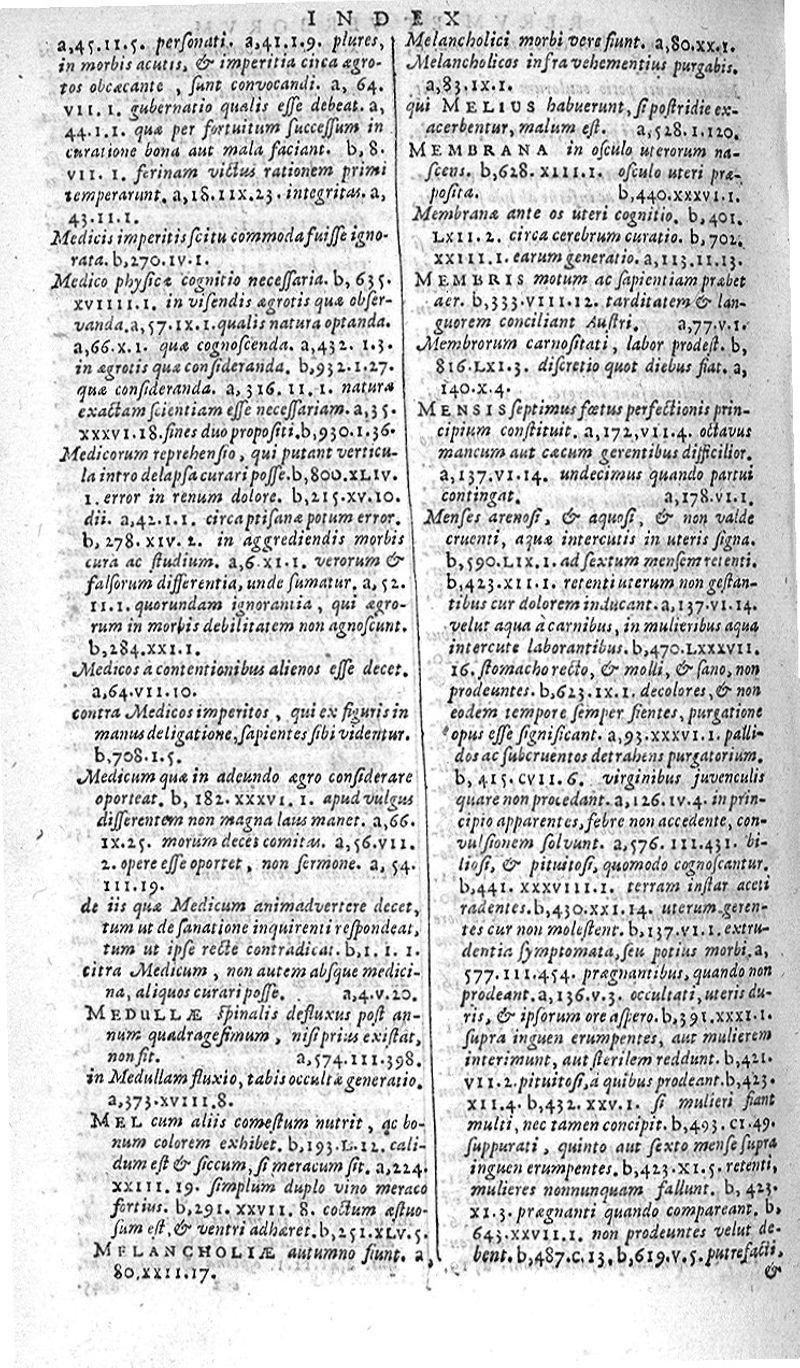 INDEX
a,45.II.5. personati. a,41.I.9. plures,
in morbis acutis, & imperitia circa ægro-
tos obcæcante, sunt convocandi. a, 64.
VII. I. gubernatio qualis esse debeat. a,
44.I.I. quæ per fortuitum successum in
curatione bona aut mala faciant. b,8.
VII. I. ferinam victus rationem primi
temperarunt. a,18.IIX.23. integritas. a,
43.II.I.
Medicis imperitis scitu commoda fuisse igno-
rata. b,270.IV.I.
Medico physicæ cognitio necessaria. b, 635.
XVIIII.I. in visendis ægrotis quæ obser-
vanda. a,57.IX.I. qualis natura optanda.
a,66.X.I. quæ cognoscenda. a,432. I.3.
in ægrotis quæ consideranda. b,932.I.27.
quæ consideranda. a, 316. II. I. naturæ
exactam scientiam esse necessariam. a,35.
XXXVI.18. fines duo propositi. b,930.I.36.
Medicorum reprehensio, qui putant verticu-
la intro delapsa curari posse. b,800.XLIV.
I. error in renum dolore. b,215.XV.10.
dii. a,42.I.I. circa ptisanæ potum error.
b, 278. XIV. 2. in aggrediendis morbis
cura ac studium. a,6.XI.I. verorum &
falsorum differentia, unde sumatur. a, 52.
II.I. quorundam ignorantia, qui ægro-
rum in morbis debilitatem non agnoscunt.
b,284.XXI.I.
Medicos a contentionibus alienos esse decet.
a,64.VII.10.
contra Medicos imperitos, qui ex figuris in
manus deligatione, sapientes sibi videntur.
b,708.I.5.
Medicum quæ in adeundo ægro considerare
oporteat. b, 182. XXXVI. I. apud vulgus
differentem non magna laus manet. a,66.
IX.25. morum decet comitas. a,56.VII.
2. opere esse oportet, non sermone. a, 54.
III.19.
de iis quæ Medicum animadvertere decet,
tum ut de sanatione inquirenti respondeat,
tum ut ipse recte contradicat. b,I. I. I.
citra Medicum, non autem absque medici-
na, aliquos curari posse. a,4.V.20.
MEDULLÆ spinalis defluxus post an-
num quadragesimum, nisi prius existat,
non fit. a,574.III.398.
in Medullam fluxio, tabis occultæ generatio.
a,373.XVIII.8.
MEL cum aliis comestum nutrit, ac bo-
num colorem exhibet. b,193.L.12. cali-
dum est & siccum, si meracum sit. a,224.
XXIII. 19. simplum duplo vino meraco
fortius. b,291. XXVII. 8. coctum æstuo-
sum est, & ventri adhæret. b,251.XLV.5.
MELANCHOLIÆ autumno fiunt. a,
80.XXII.17.
Melancholici morbi vere fiunt. a,80.XX.I.
Melancholicos infra vehementius purgabis.
a,83.IX.I.
qui MELIUS habuerunt, si postridie ex-
acerbentur, malum est. a,528.I.120.
MEMBRANA in osculo uterorum na-
scens. b,628.XIIII.I. osculo uteri præ-
posita. b,440.XXXVI.I.
Membranæ ante os uteri cognitio. b,401.
LXII.2. circa cerebrum curatio. b,702.
XXIIII.I. earum generatio. a,113.II.13.
MEMBRIS motum ac sapientiam præbet
aer. b,333.VIII.12. tarditatem & lan-
guorem conciliant Austri. a,77.V.I.
Membrorum carnositati, labor prodest. b,
816.LXI.3. discretio quot diebus fiat. a,
140.X.4.
MENSIS septimus fœtus perfectionis prin-
cipium constituit. a,172,VII.4. octavus
mancum aut cæcum gerentibus difficilior.
a,137.VI.14. undecimus quando partui
contingat. a,178.VI.I.
Menses arenosi, & aquosi, & non valde
cruenti, aquæ intercutis in uteris signa.
b,590.LIX.I. ad sextum mensem retenti.
b,423.XII.I. retenti uterum non gestan-
tibus cur dolorem inducant. a,137.VI.14.
velut aqua à carnibus, in mulieribus aqua
intercute laborantibus. b,470.LXXXVII.
16. stomacho recto, & molli, & sano, non
prodeuntes. b,623.IX.I. decolores, & non
eodem tempore semper fientes, purgatione
opus esse significant. a,93.XXXVI.I. palli-
dos ac subcruentos detrahens purgatorium.
b, 415.CVII.6. virginibus juvenculis
quare non procedant. a,126.IV.4. in prin-
cipio apparentes, febre non accedente, con-
vulsionem solvunt. a,576.III.431. bi-
liosi, & pituitosi, quomodo cognoscantur.
b,441. XXXVIII.I. terram instar aceti
radentes. b,430.XXI.14. uterum geren-
tes cur non molestent. b,137.VI.I. extru-
dentia symptomata, seu potius morbi. a,
577.III.454. prægnantibus, quando non
prodeant. a,136.V.3. occultati, uteris du-
ris, & ipsorum ore aspero. b,391.XXXI.I.
supra inguen erumpentes, aut mulierem
interimunt, aut sterilem reddunt. b,421.
VII.2. pituitosi, à quibus prodeant. b,423.
XII.4. b,432.XXV.I. si mulieri fiant
multi, nec tamen concipit. b,493.CI.49.
suppurati, quinto aut sexto mense supra
inguen erumpentes. b,423.XI.5. retenti,
mulieres nonnunquam fallunt. b, 423.
XI.3. prægnanti quando compareant. b,
643.XXVII.I. non prodeuntes velut de-
bent. b,487.C.13. b,619.V.5. putrefacti,
&